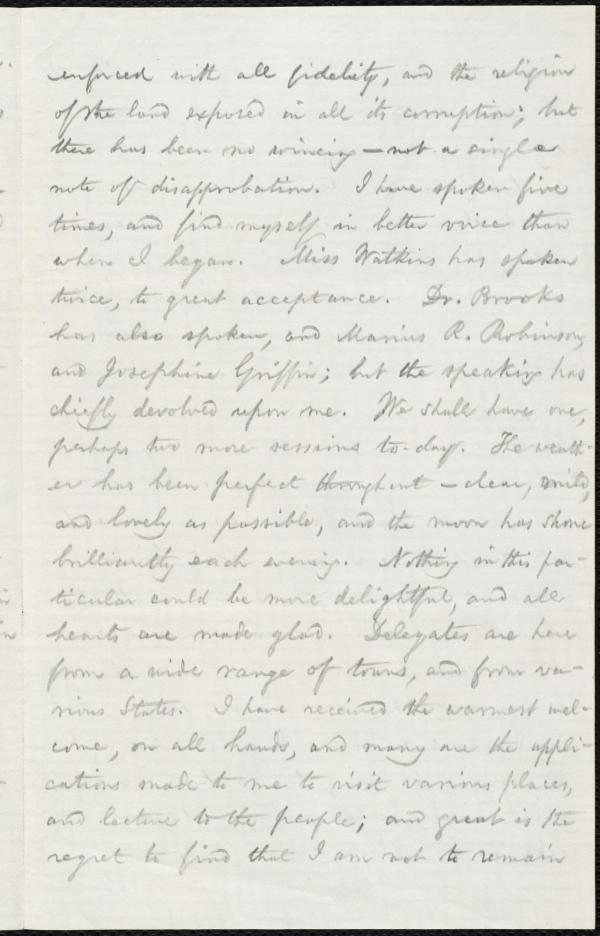 enforced with all fidelity, and the religion
of the land exposed in all its corruption; but
there has been no wincing — not a single
note of disapprobation. I have spoken five
times, and find myself in better voice than
when I began. Miss Watkins has spoken
twice, to great acceptance. Dr. Brooks
has also spoken, and Marius R. Robinson,
and Josephine Griffin; but the speaking has
chiefly devolved upon me. We shall have one,
perhaps two more sessions to-day. The weath-
er has been perfect throughout — clear, mild,
and lovely as possible, and the moon has shone
brilliantly each evening. Nothing in this par-
ticular could be more delightful, and all
hearts are made glad. Delegates are here
from a wide range of towns, and from va-
rious States. I have received the warmest wel-
come, on all hands, and many are the appli-
cations made to me to visit various places,
and lecture to the people; and great is the
regret to find that I am not to remain